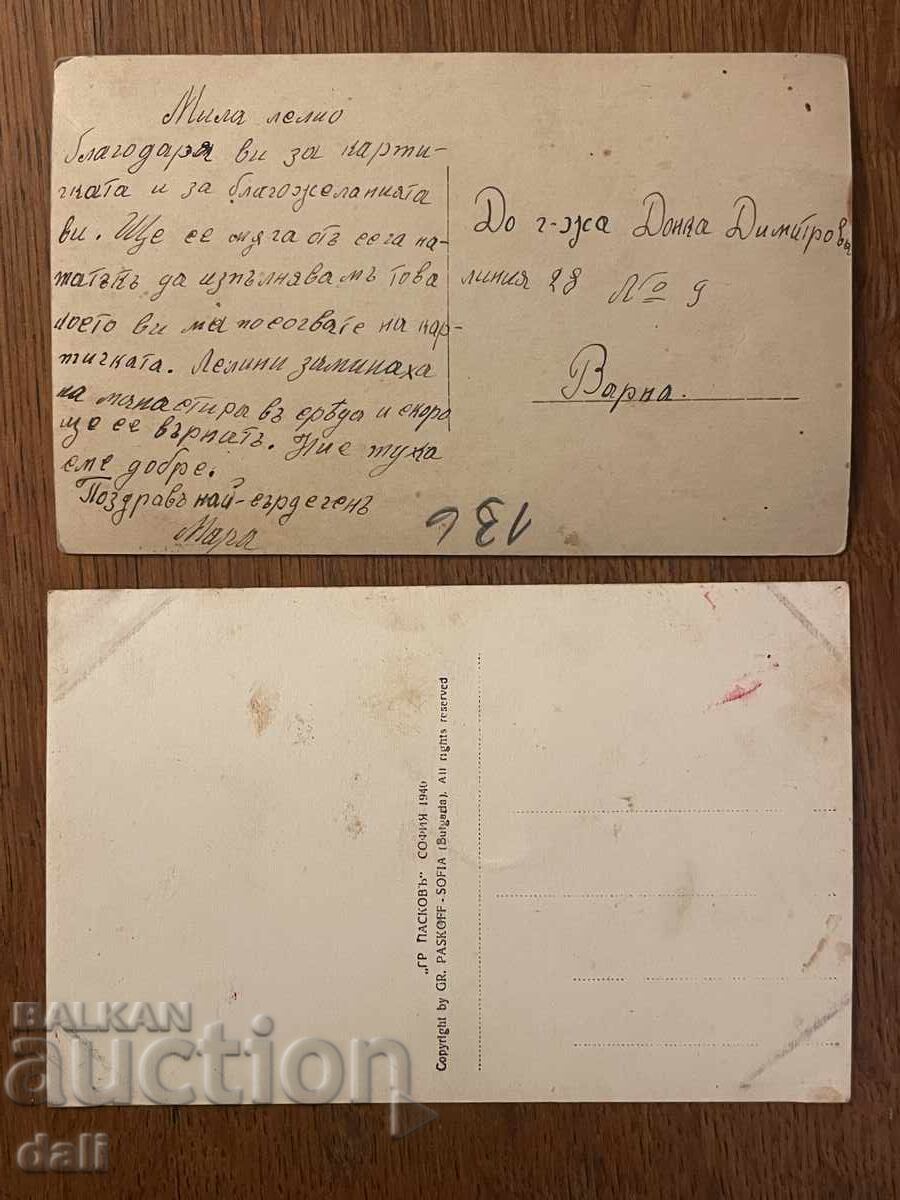 Мила лелио
благодаря ви за карти-
чката и за благожеланията
ви. Ще се мяга отъ сега на-
татъкъ да изпълнявамъ това
което ви ма посочвате на кар-
тичката. Лелини заминаха
на мънастира въ сръда и скоро
ще се върнатъ. Ние тука
сме добре.
Поздравъ най-сърдеченъ
Мара
До г-жа Донка Димитровъ
линия 28 № 9
Варна.
136
„ГР ПАСКОВЪ" СОФИЯ 1940
Copyright by GR. PASKOFF - SOFIA (Bulgaria). All rights reserved
BALKAN
auction
dali